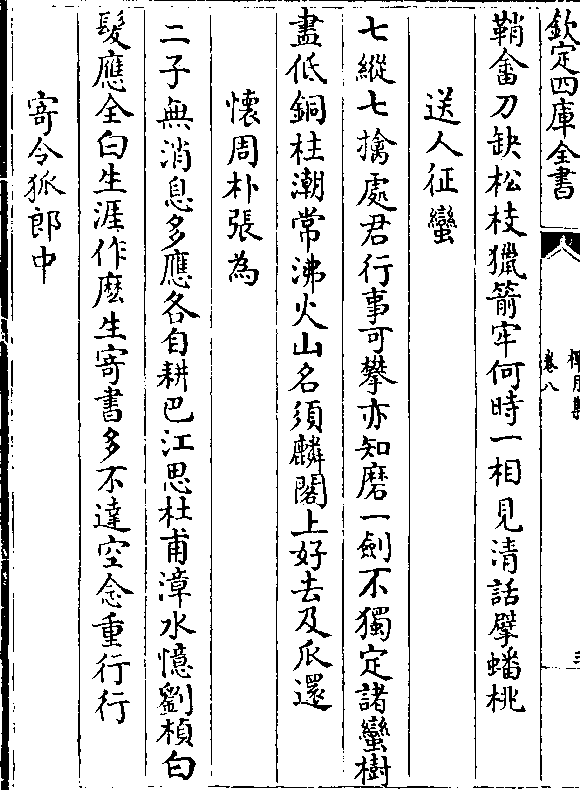 欽定四庫全書
卷八
鞘畬刀缺松枝獵箭牢何時一相見清話擘蟠桃
送人征蠻
七縱七擒處君行事可攀亦知磨一劒不獨定諸蠻樹
盡低銅柱潮常沸火山名須麟閣上好去及瓜還
懐周朴張為
二子無消息多應各自耕巴江思杜甫漳水憶劉楨白
髮應全白生涯作麽生寄書多不達空念重行行
寄令狐郎中